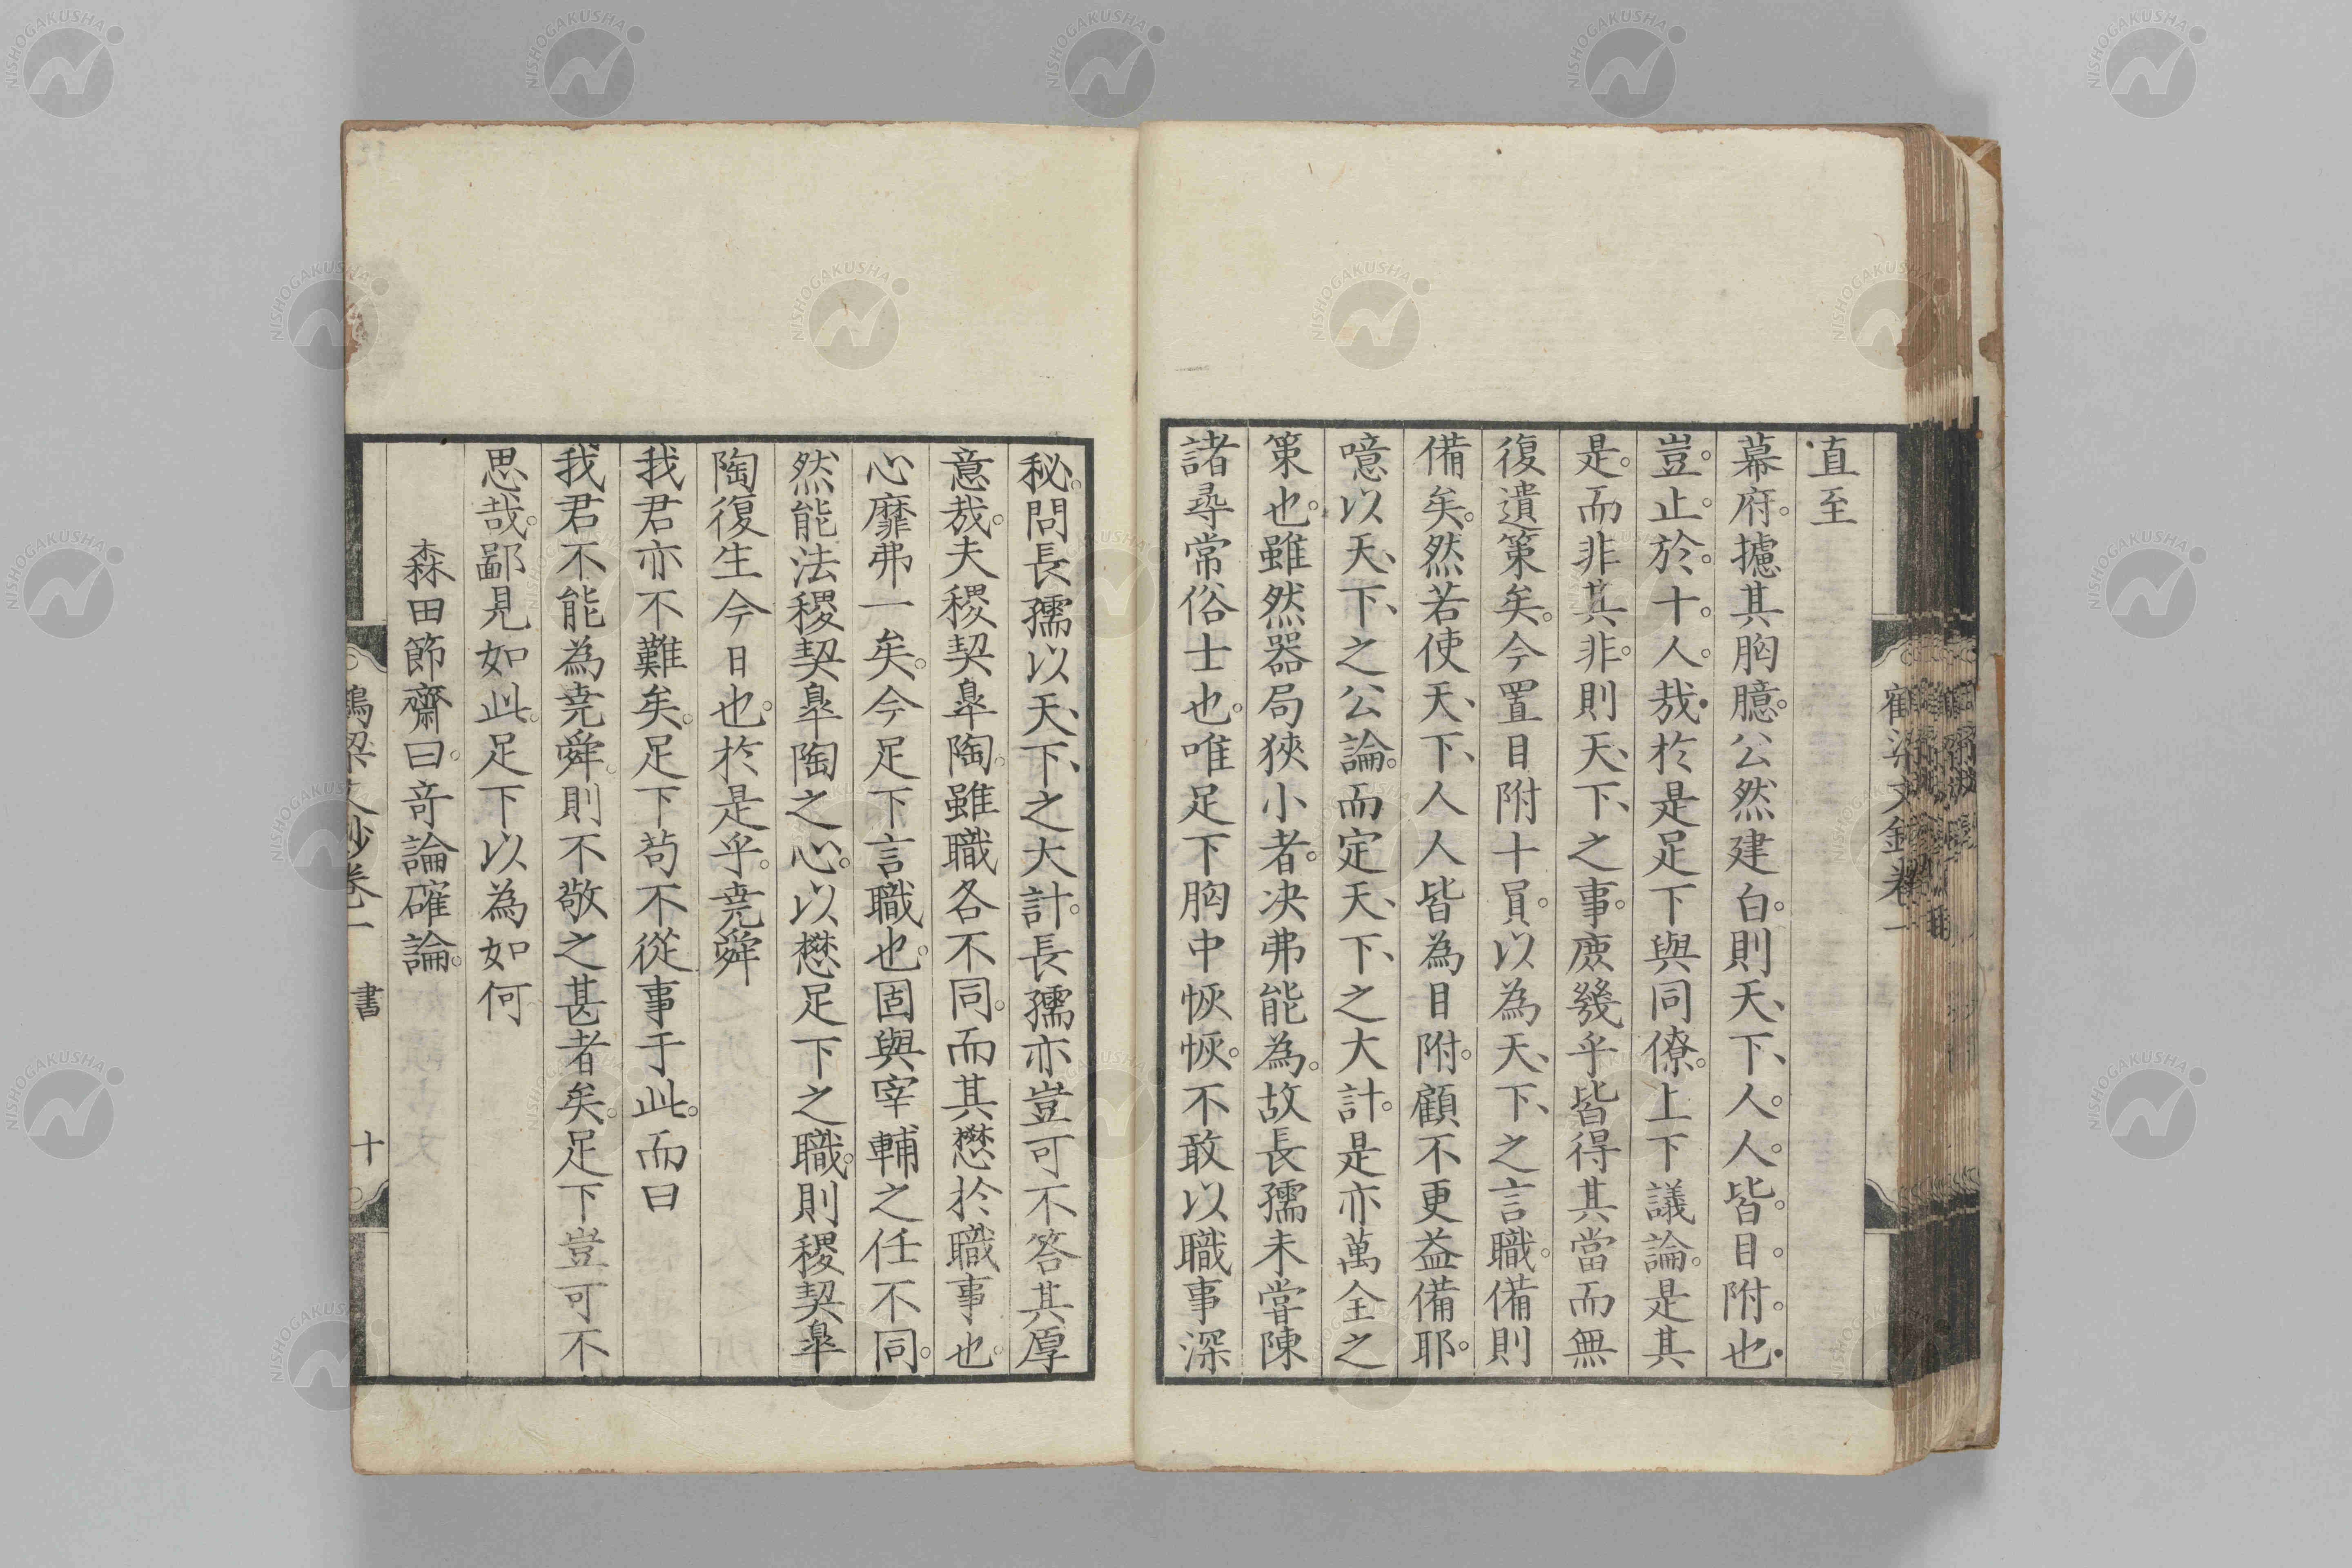 直至
幕府。攄其胸臆。公然建白。則天、下、人。人。皆。目。附。也
豈。止。於。十。人。哉於是足下與同僚。上下議論。是其
是。而非其非。則天、下、之事。庶幾乎皆得其當而無
復遺策矣。今置目附十員。以為天、下、之言職。備則
備矣。然若使天、下、人人皆為目附。顧不更益備耶。
噫以天、下、之公論。而定天、下、之大計。是亦萬全之
策也。雖然器局狹小者。决弗能為。故長孺未嘗陳
諸尋常俗士也。唯足下胸中恢恢。不敢以職事深
秘。問長孺以天、下、之大計。長孺亦豈可不答其厚
意哉。夫稷契皐陶。雖職各不同。而其懋於職事也。
心靡弗一矣。今足下言職也。固與宰輔之任不同。
然能法稷契皐陶之心。以懋足下之職。則稷契皐
陶復生今日也。於是乎。堯舜
我君亦不難矣。足下苟不從事于此。而曰
我君不能為堯舜。則不敬之甚者矣。足下豈可不
思哉。鄙見如此。足下以為如何
森田節齋曰。奇論確論。
書
十
NISHOGAKUSHA